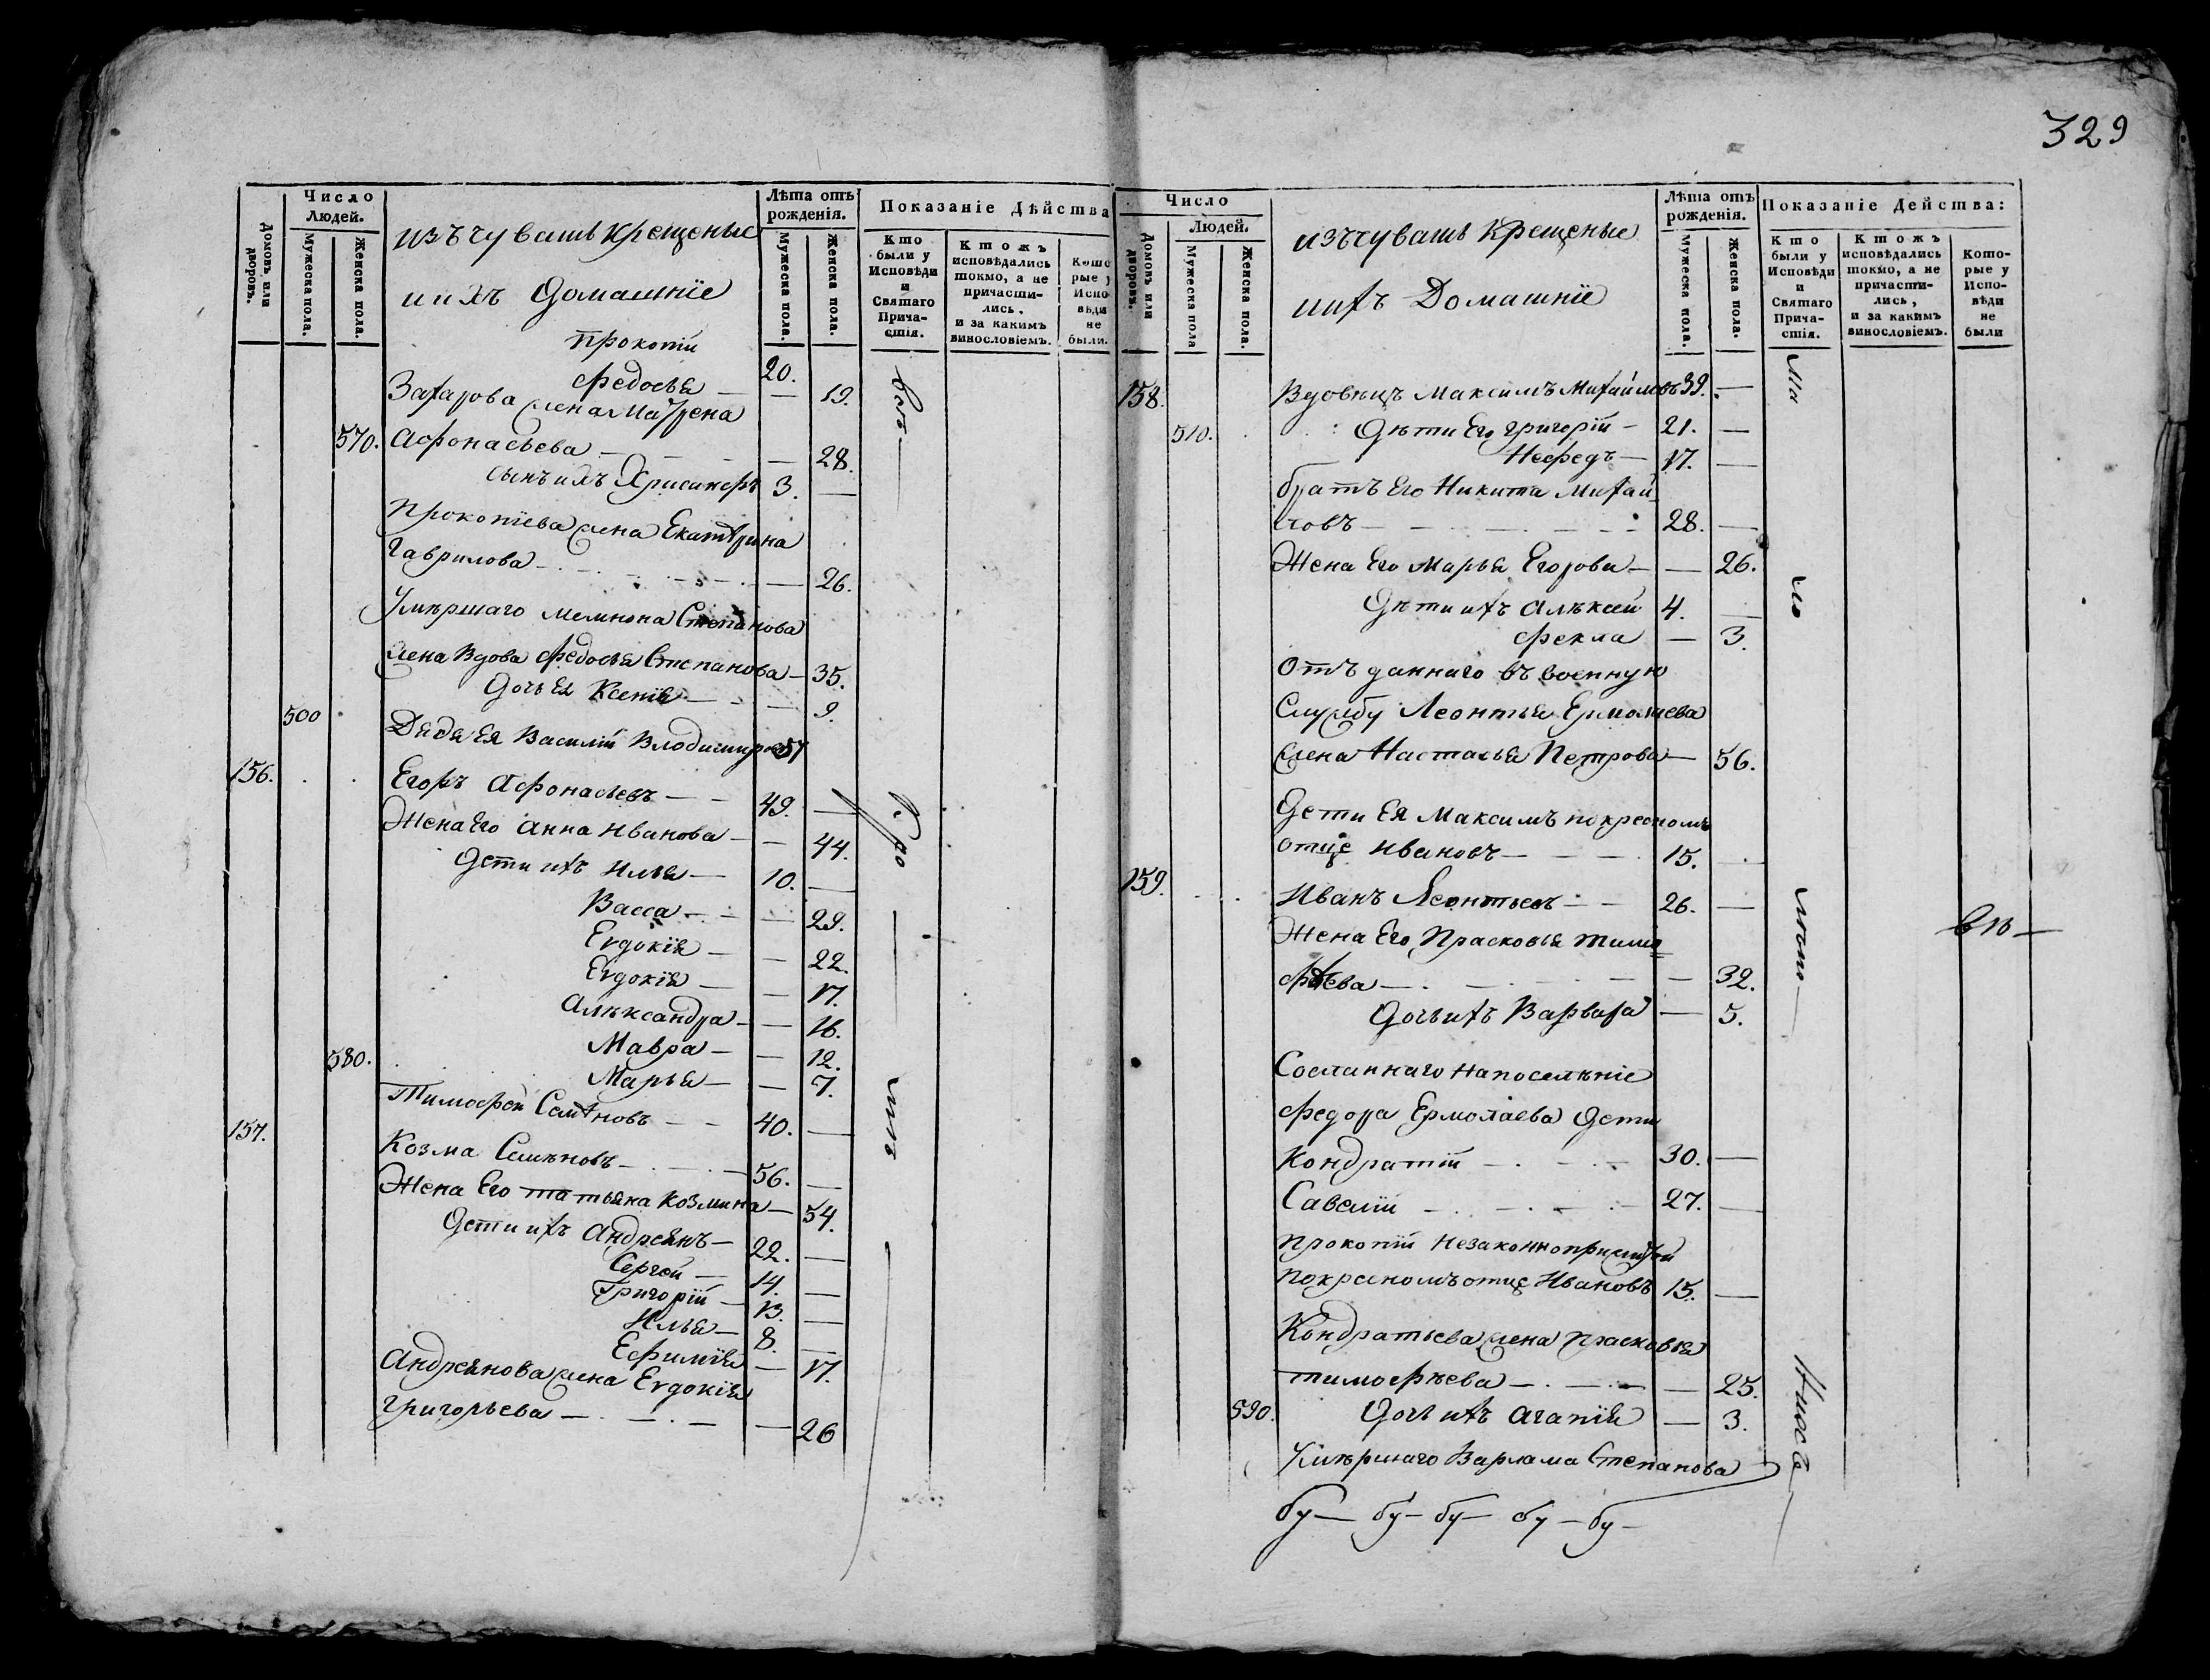 329
Домовъ или дворовъ.
Число Людей.
Мужеска пола.
Женска пола.
изъ чувашъ крещеные
и ихъ Домашнїе
Лѣта отъ рожденія.
Мужеска пола.
Женска пола.
Показаніе Дѣйства
Кто были у Исповѣди и Святаго Прича-стія.
Ктожъ исповѣдались токмо, а не причасти-лись, и за какимъ винословіемъ.
Кото рые у Испо вѣди не были.
Прокопїй 20.
Федосья — — 19.
Захарова жена Матрена
570. Афонасьева — — 28.
сынъ ихъ Хрисанфъ 3. —
Прокопїева жена Екатерина
Гаврилова — — 26.
Умѣршаго Мемнона Степанова
жена Вдова Федосья Степанова — 35.
Дочь Ея Ксенїя — — 9.
500 Дядя Ея Василїй Влодимировъ 57
156. Егоръ Афонасьевъ — — 49. —
Жена Его Анна Иванова — — 44.
Дети ихъ Илья — 10. —
Васса — — 29.
Евдокїя — — 22.
Евдокїя — — 17.
Алѣксандра — — 16.
580. Мавра — — 12.
Марья — — 7.
Тимофей Семѣновъ — — 40. —
157. Козма Семѣновъ — — 56. —
Жена Его татьяна Козмина — 54.
Дети ихъ Андреянъ — 22. —
Сергей — 14. —
Григорїй — 13. —
Илья — 8. —
Ефимїя — 17.
Андреянова жена Евдокїя
Григорьева — — — 26
Домовъ или дворовъ.
Число Людей.
Мужеска пола
Женска пола.
изъ чувашъ Крещеные
и ихъ Домашнїе
Лѣта отъ рожденія.
Мужеска пола.
Женска пола.
Показаніе Действа:
Кто были у Исповѣди и Святаго Прича-стія.
Ктожъ исповѣдались токмо, а не причасти-лись, и за какимъ винословіемъ.
Кото-рые у Испо-вѣди не были
158. Вдовецъ Максимъ Михайловъ 39. —
510. Дѣти Его Григорїй — 21. —
Нефедъ — 17. —
братъ Его Никита Михай
ловъ — — 28. —
Жена Его Марья Егорова — — 26.
Дѣти ихъ Алѣксей 4. —
Фекла — 3.
Отъ даннаго въ военную
Службу Леонтья Ермолаева
жена Настасья Петрова — 56.
Дети Ея Максимъ по кресномъ
отце Ивановъ — — 15. —
159. Иванъ Леонтьевъ — — 26. —
Жена Его Прасковья тимо
фѣева — — 32.
Дочь ихъ Варвара — 5.
Сосланнаго на поселѣнїе
Федора Ермолаева Дети
Кондратїй — — 30. —
Савелїй — — 27. —
Прокопїй незаконноприжитой
по кресномъ отце Ивановъ 15. —
Кондратьева жена Прасковья
тимофѣева — — — 25.
590. Дочь ихъ Агапїя — 3.
Умѣршаго Варлама Степанова
бу — бу — бу — бу — бу —